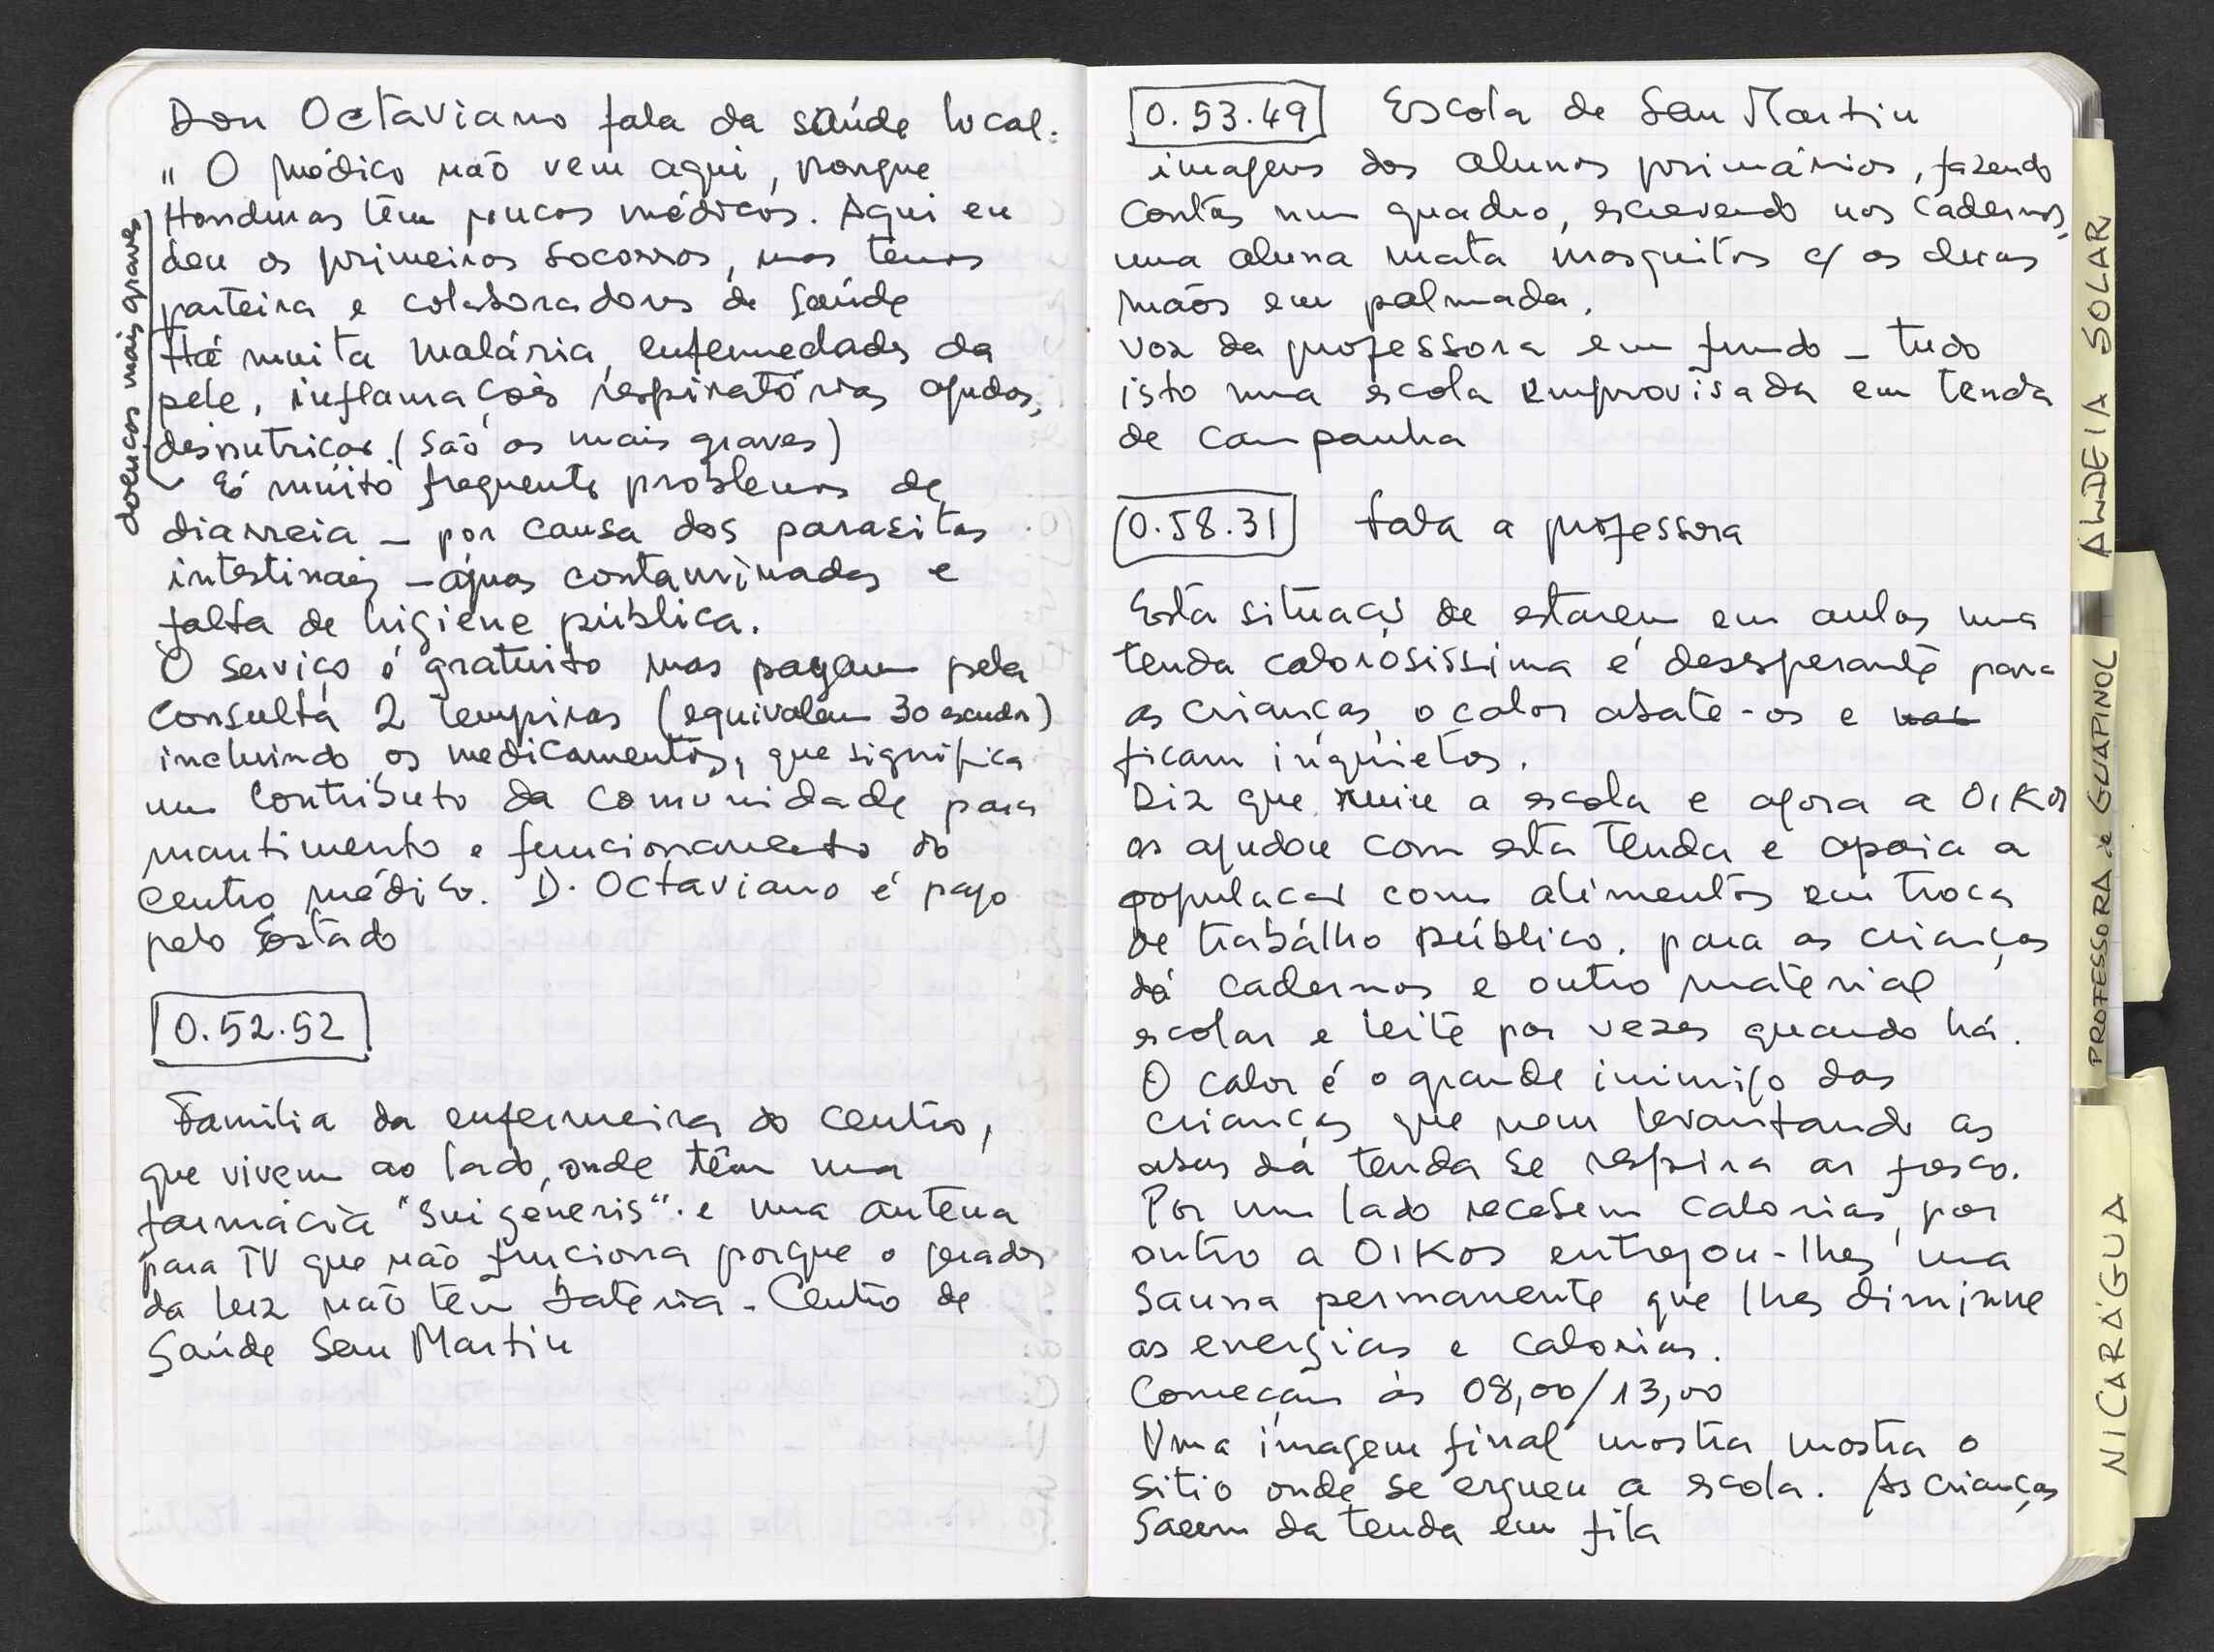 Don Octaviano fala da saúde local:
" O médico não vem aqui, porque
Honduras têm poucos médicos. Aqui eu
dou os primeiros socorros, mas temos
parteira e colaboradores de saúde
Há muita malária, enfermedades da
pele, inflamações respiratórias agudas,
desnutrição. (são as mais graves)
É muito frequente problemas de
diarreia - por causa dos parasitas
intestinais - águas contaminadas e
falta de higiene pública.
O serviço é gratuito mas pagam pela
consulta 2 lempiras (equivalem 30 escudos)
incluindo os medicamentos, que significa
um contributo da comunidade para
mantimento e funcionamento do
centro médico. D. Octaviano é pago
pelo Estado
doenças mais graves
0.52.52
Família da enfermeira do centro,
que vivem ao lado, onde têm uma
farmácia "sui géneris" e uma antena
para TV que não funciona porque o gerador
da luz não tem bateria - Centro de
Saúde San Martin
0.53.49 Escola de San Martin
imagens dos alunos primários, fazendo
contas num quadro, escrevendo nos cadernos,
uma aluna mata mosquitos c/ as duas
mãos em palmada.
voz da professora em fundo - tudo
isto numa escola improvisada em tenda
de campanha
0.58.31 fala a professora
Esta situação de estarem em aulas numa
tenda calorosissima é desesperante para
as crianças, o calor abate-os e
ficam inquietos.
Diz que ruiu a escola e agora a OIKOS
os ajudou com esta tenda e apoia a
população com alimentos em troca
de trabalho público. para as crianças
dá cadernos e outro material
escolar e leite por vezes quando há.
O calor é o grande inimigo das
crianças que nem levantando as
abas da tenda se respira ar fresco.
Por um lado recebem calorias, por
outro a OIKOS entregou-lhes uma
sauna permanente que lhes diminue
as energias e calorias.
Começam às 08,00/13,00
Uma imagem final mostra mostra o
sitio onde se ergueu a escola. As crianças
saem da tenda em fila
ALDEIA SOLAR
PROFESSORA de GUAPINOL
NICARÁGUA